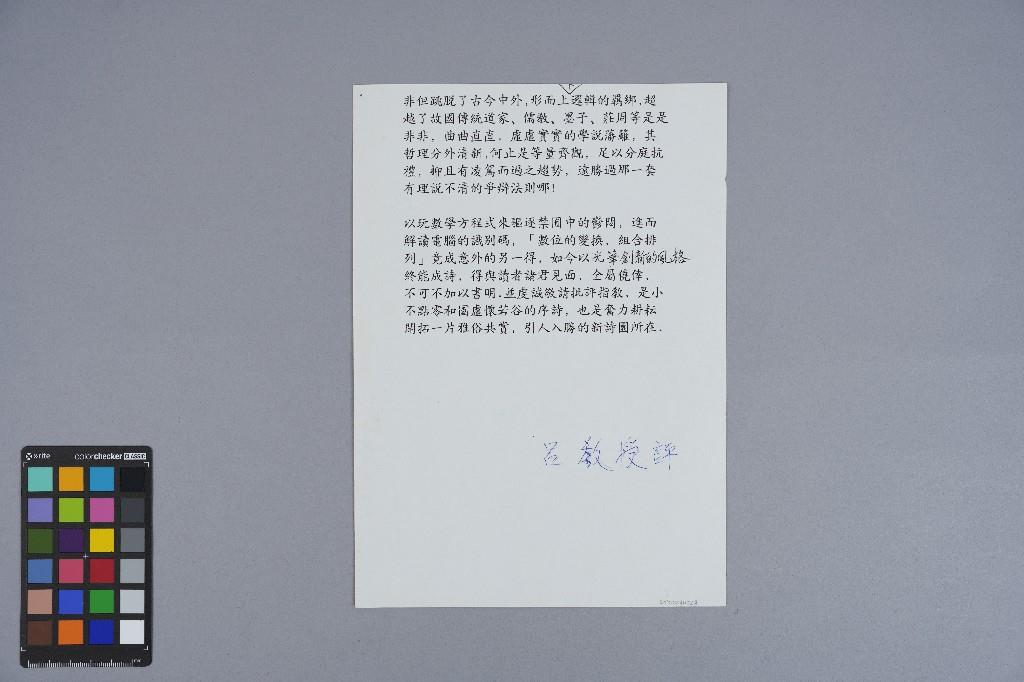 非但跳脫了古今中外,形而上邏輯的羈綁,超
越了故國傳統道家、儒教、墨子、莊周等是是
非非,曲曲直直,虛虛實實的學說藩籬,其
哲理分外清新,何止是等量齊觀,足以分庭抗
禮,抑且有凌駕而過之趨勢,遠勝過那一套
有理說不清的爭辯法則哪!
以玩數學方程式來驅逐禁囿中的鬱悶,進而
解讀電腦的識別碼,「數位的變換,組合排
列」竟成意外的另一得,如今以光華創新的風格
終能成詩,得與讀者諸君見面,全屬僥倖,
不可不加以書明.並虔誠敬請批評指教,是小
不點零和圈虛懷若谷的序詩,也是奮力耕耘
開拓一片雅俗共賞,引人入勝的新詩園所在.
呂教授評
x-rite colorchecker CLASSIC